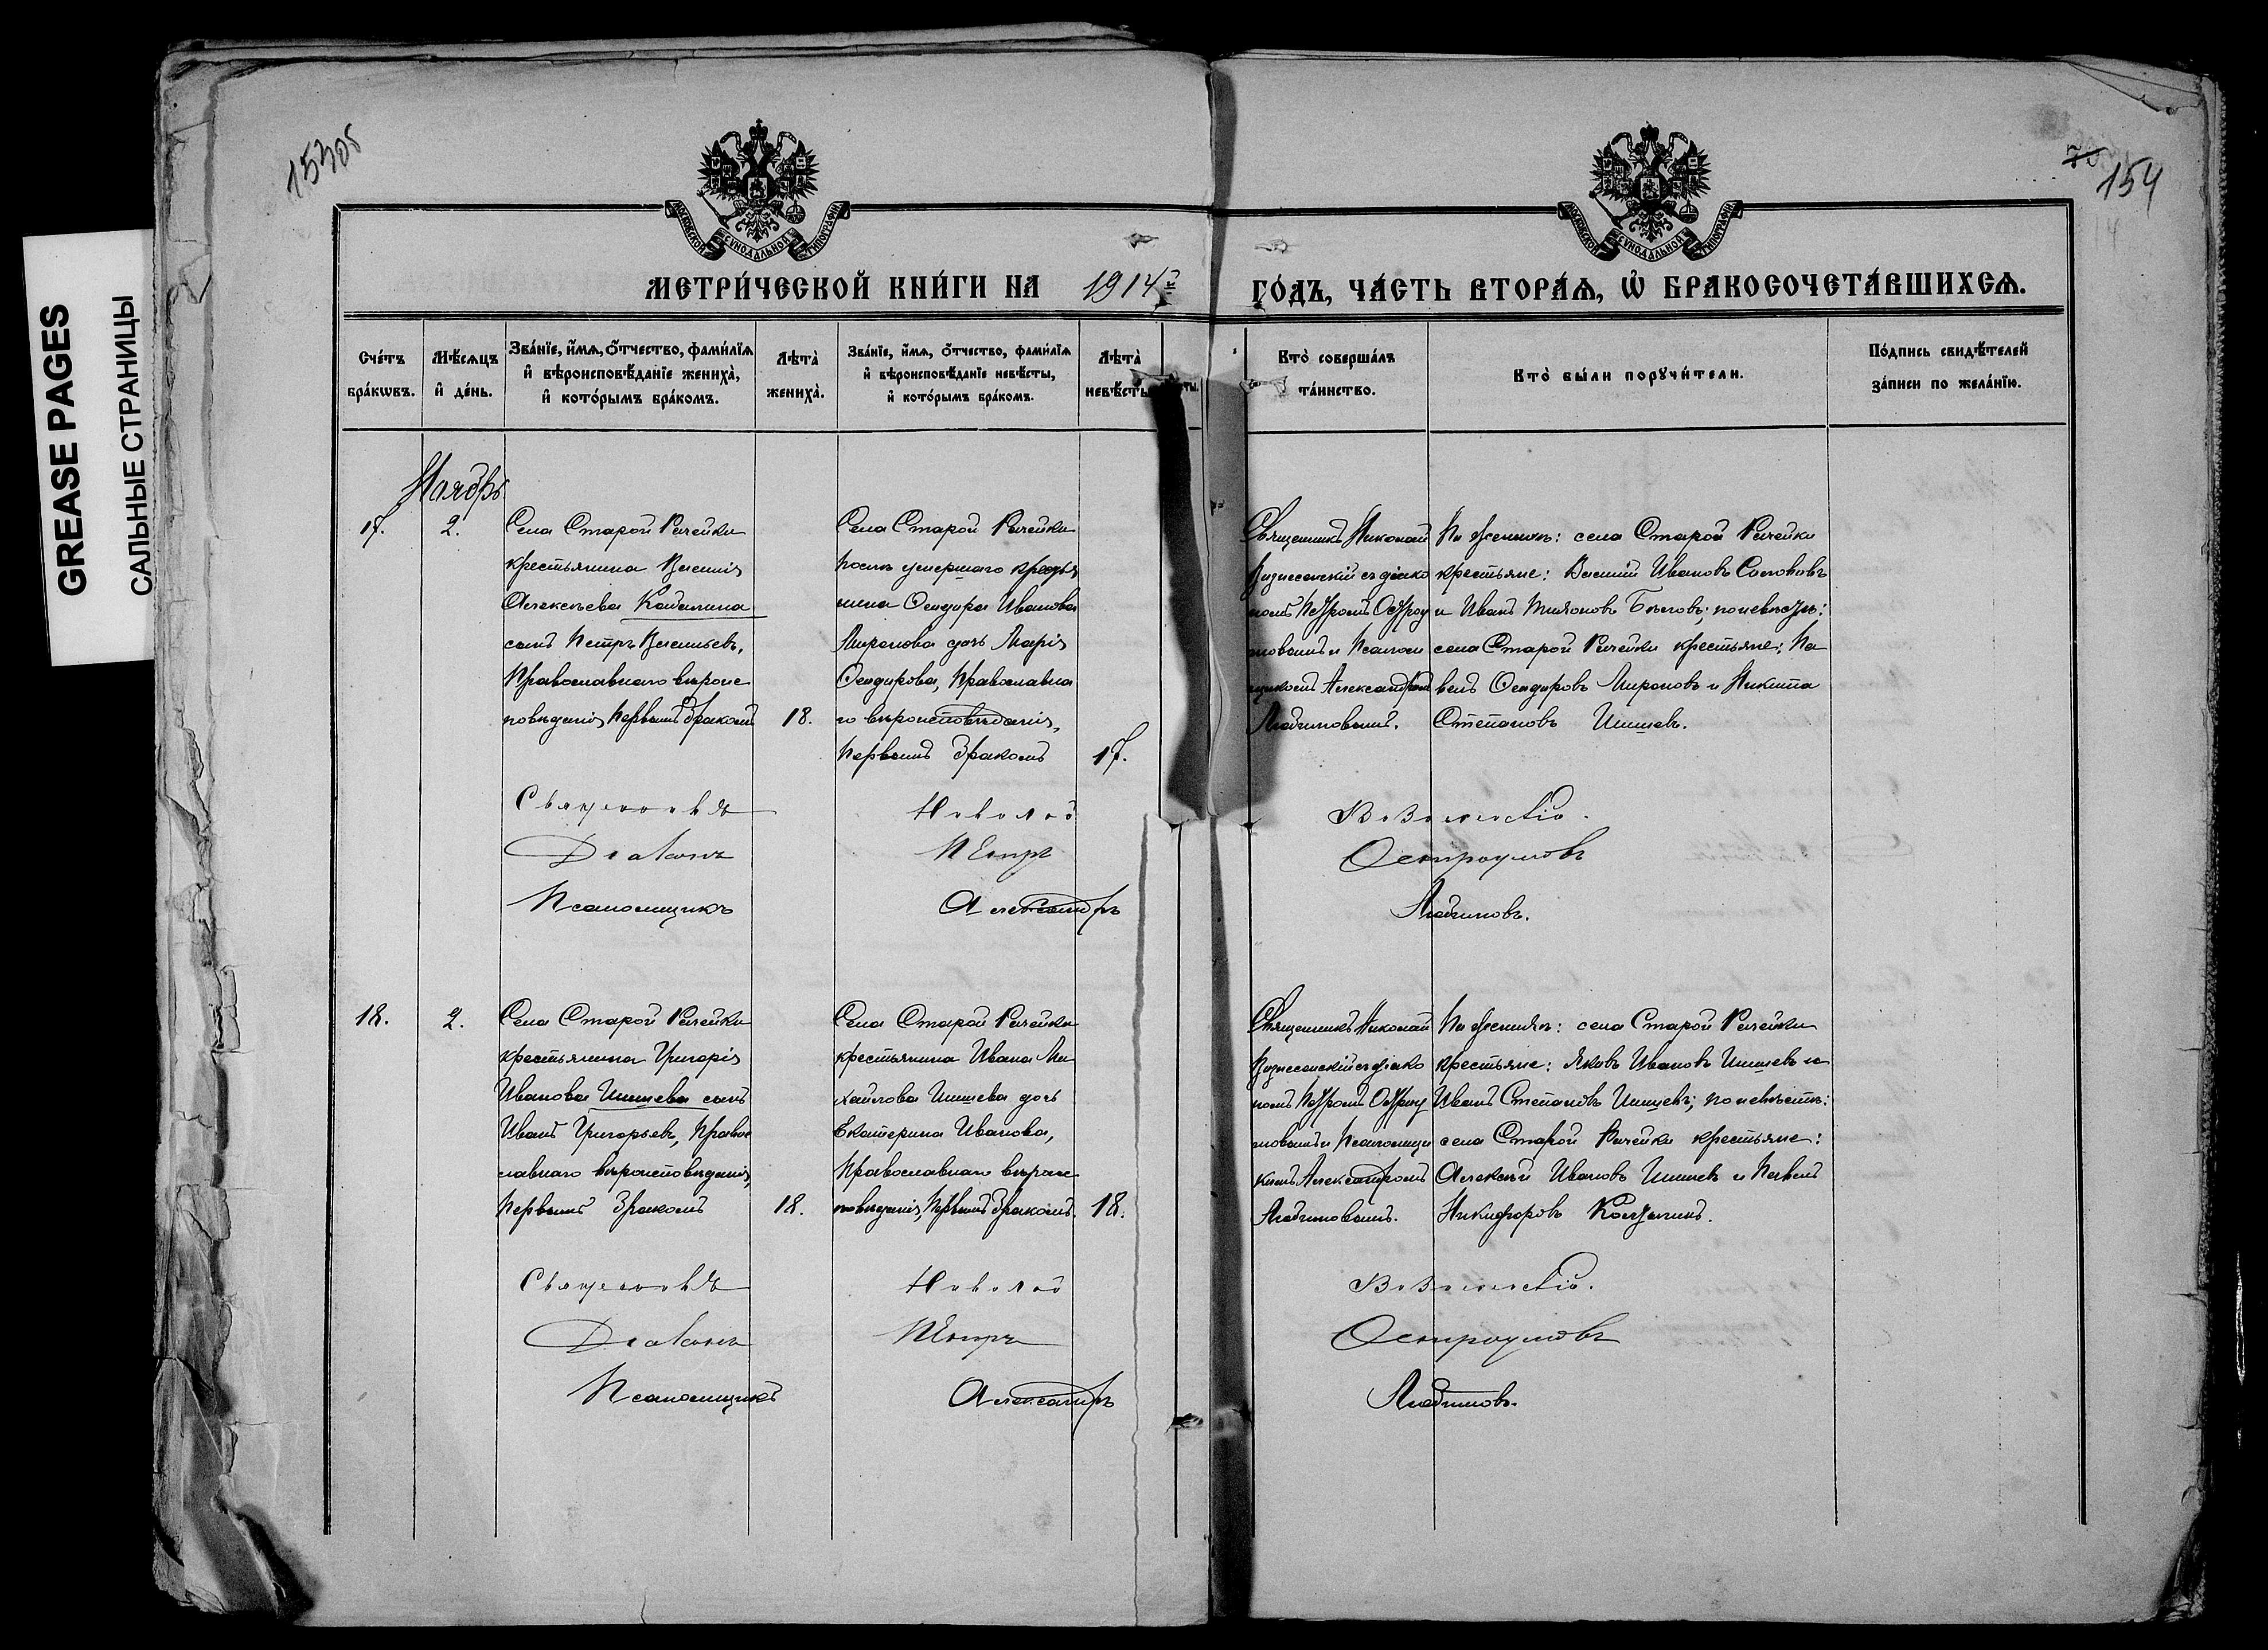 GREASE PAGES
САЛЬНЫЕ СТРАНИЦЫ
154
МОСКОВСКОЙ СѴНОДАЛЬНОЙ ТИПОГРАФІИ
МОСКОВСКОЙ СѴНОДАЛЬНОЙ ТИПОГРАФІИ
МЕТРИ́ЧЕСКОЙ КНИ́ГИ НА 1914 ГО́ДЪ, ЧА́СТЬ ВТОРА́Ѧ, Ѡ҆ БРАКОСОЧЕТА́ВШИХСѦ.
Сче́тъ
бра́кѡвъ.
Мѣ́сѧцъ
и҆ де́нь.
Зва́нїе, и҆́мѧ, ѻ҆́тчество, фами́лїѧ
и҆ вѣроисповѣ́данїе жениха̀,
и҆ кото́рымъ бра́комъ.
Лѣта̀
жениха̀.
Зва́нїе, и҆́мѧ, ѻ҆́тчество, фами́лїѧ
и҆ вѣроисповѣ́данїе невѣ́сты,
и҆ кото́рымъ бра́комъ.
Лѣта̀
невѣ́сты.
Кто̀ соверша́лъ
та́инство.
Кто̀ бы́ли порꙋчи́тели.
По́дпись свидѣ́телей
за́писи по жела́нїю.
Ноябрь
17.
2.
Села Старой Рачейки
крестьянина Василія
Алексѣева Кабалина
сынъ Петръ Васильевъ,
Православнаго вѣроис
повѣданія, первымъ бракомъ
18.
Села Старой Рачейки
послѣ умершаго крестья
нина Ѳеодора Иванова
Миронова дочь Марія
Ѳеодорова, Православна
го вѣроисповѣданія,
первымъ бракомъ
17.
Священникъ Николай
Вознесенскій съ діако
номъ Петромъ Остроу
мовымъ и Псалом
щикомъ Александромъ
Любимовымъ.
По женихѣ: села Старой Рачейки
крестьяне: Василій Ивановъ
и Иванъ Бѣловъ; по невѣстѣ:
села Старой Рачейки крестьяне: Па
велъ Ѳеодоровъ Мироновъ и Никита
Степановъ Шишевъ.
Священникъ Николай Вознесенскій.
Діаконъ Петръ Остроумовъ
Псаломщикъ Александръ Любимовъ.
18.
2.
Села Старой Рачейки
крестьянина Григорія
Иванова Шишева сынъ
Иванъ Григорьевъ, Право
славнаго вѣроисповѣданія,
первымъ бракомъ
18.
Села Старой Рачейки
крестьянина Ивана Ми
хайлова Шишева дочь
Екатерина Иванова,
Православнаго вѣроис
повѣданія, первымъ бракомъ.
18.
Священникъ Николай
Вознесенскій съ діако
номъ Петромъ Остроу
мовымъ и Псаломщи
комъ Александромъ
Любимовымъ.
По женихѣ: села Старой Рачейки
крестьяне: Яковъ Ивановъ Шишевъ и
Иванъ Степановъ Шишевъ; по невѣстѣ:
села Старой Рачейки крестьяне:
Алексѣй Ивановъ Шишевъ и Павелъ
Никифоровъ
Священникъ Николай Вознесенскій.
Діаконъ Петръ Остроумовъ
Псаломщикъ Александръ Любимовъ.